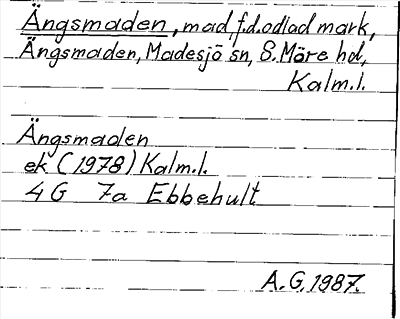 Ängsmaden, mad, f.d. odlad mark,
Ängsmaden, Madesjö sn, S. Möre hd,
Kalm.l.
Ängsmaden
ek (1978) Kalm.l.
4 G 7a Ebbehult
A.G. 1987.